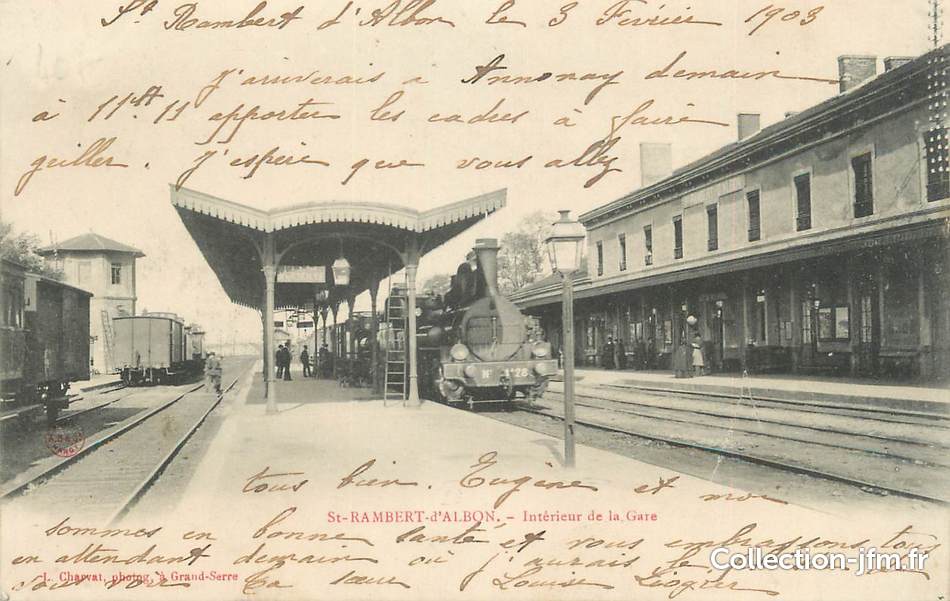 St Rambert d'Albon le 3 Février 1903
J'arriverais a Annonay demain
à 11ht.11 apporter les cadres à faire
guiller. J'espère que vous allez
tous bien. Eugène et moi
St-RAMBERT-d'ALBON. - Intérieur de la Gare
sommes en bonne santé et vous embrassons tous
en attendant demain où j'aurais le
L. Charvat, photog. à Grand-Serre
voir Ta sœur Louise
Collection-jfm.fr
N° 128